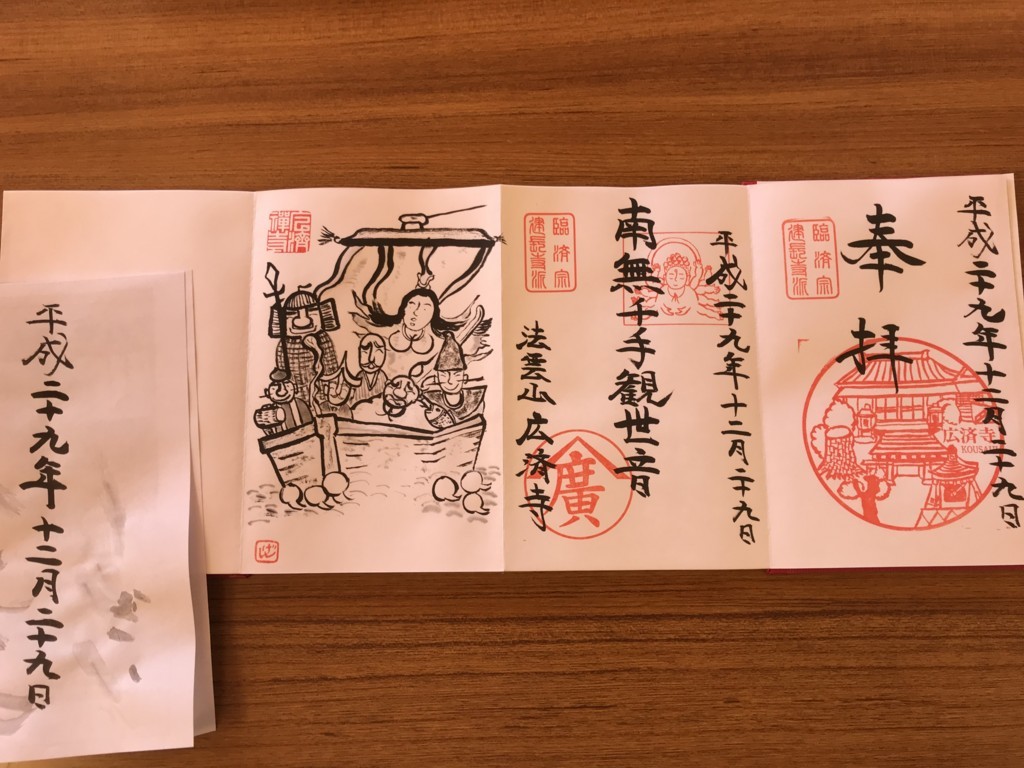 平成二十九年十二月二十九日
奉拝
臨済宗
建長寺派
広済寺
平成二十九年十二月二十九日
南無千手観世音
臨済宗
建長寺派
法雲山 広済寺
廣
広濟
禪寺
平成二十九年十二月二十九日